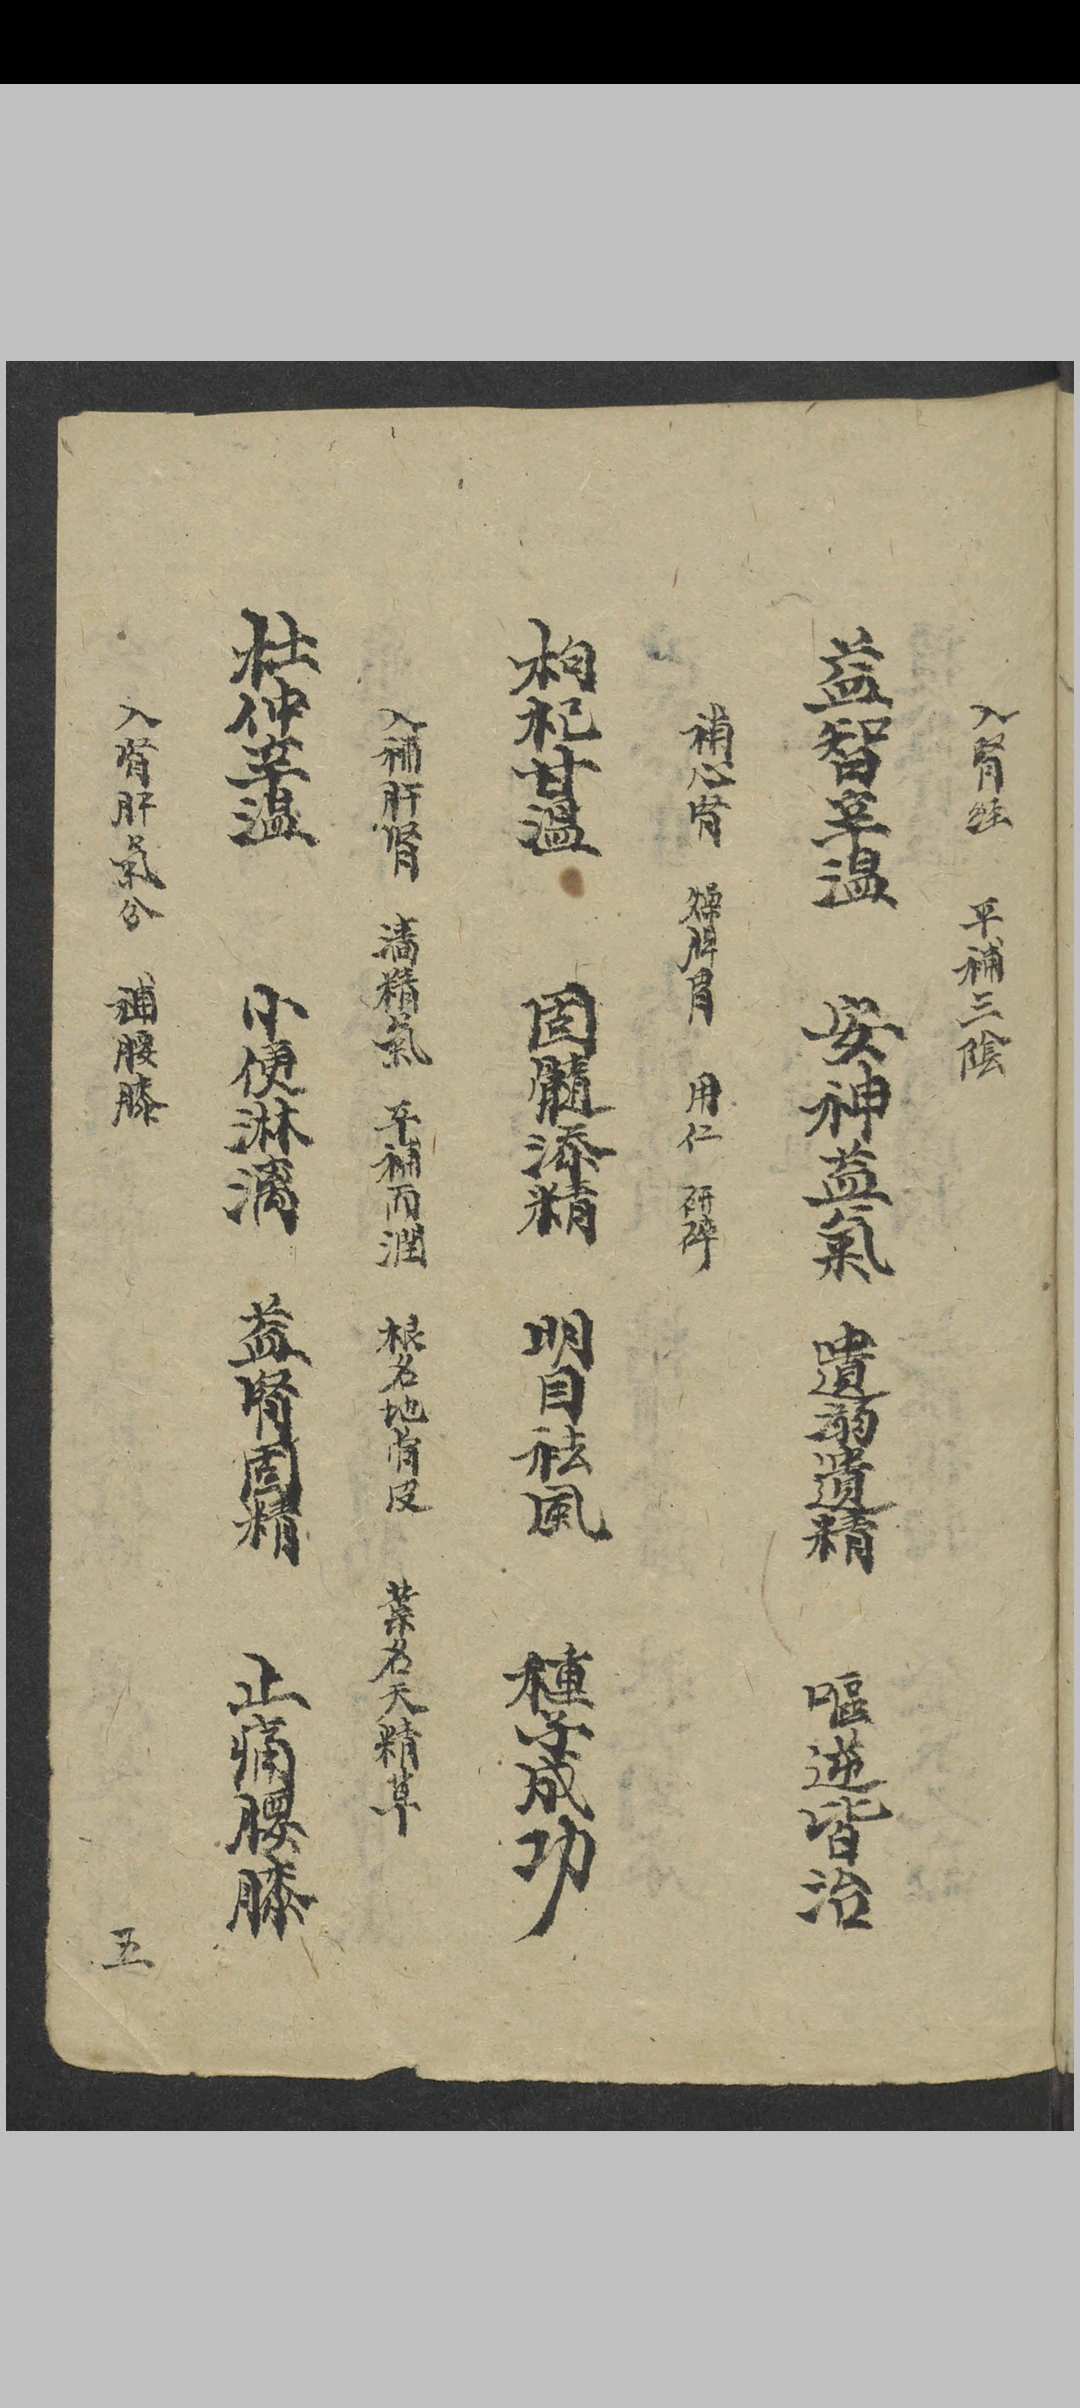 入腎經 平補三陰
益智辛温 安神益氣 遺溺遺精 嘔逆皆治
補心腎 燥脾胃 用仁 研碎
枸杞甘温 固髓添精 明目祛風 種子成功
入補肝腎 濇精氣 平補而潤 根名地骨皮 葉名天精草
杜仲辛温 小便淋漓 益腎固精 止痛腰膝
入腎肝氣分 補腰膝
五